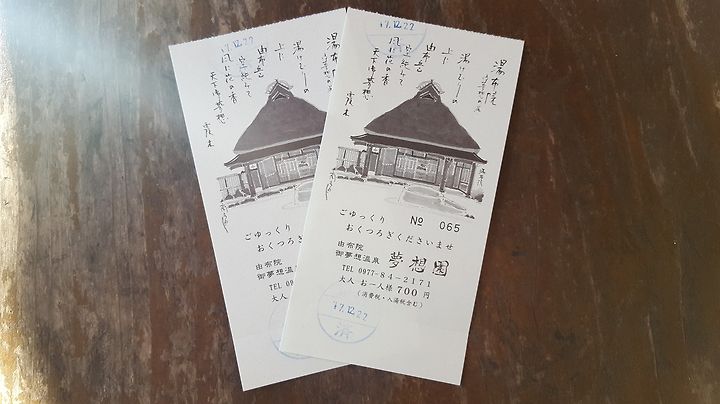 17.12.22
湯布院
湯けむりの
上に
由布岳
空紺みて
風に花の香
天下御夢想
霞木
ごゆっくり
№ 065
おくつろぎくださいませ
由布院
御夢想温泉 夢想園
TEL 0977-84-2171
大人 お一人様 700 円
(消費税・入湯税含む)
17.12.22
済
17.12.22
湯けむりの
上に
由布岳
風に花の香
天下御夢想
霞木
ごゆっくり
おくつろぎ
由布院
御夢想温泉
TEL 09
大人 お一
17.12.22